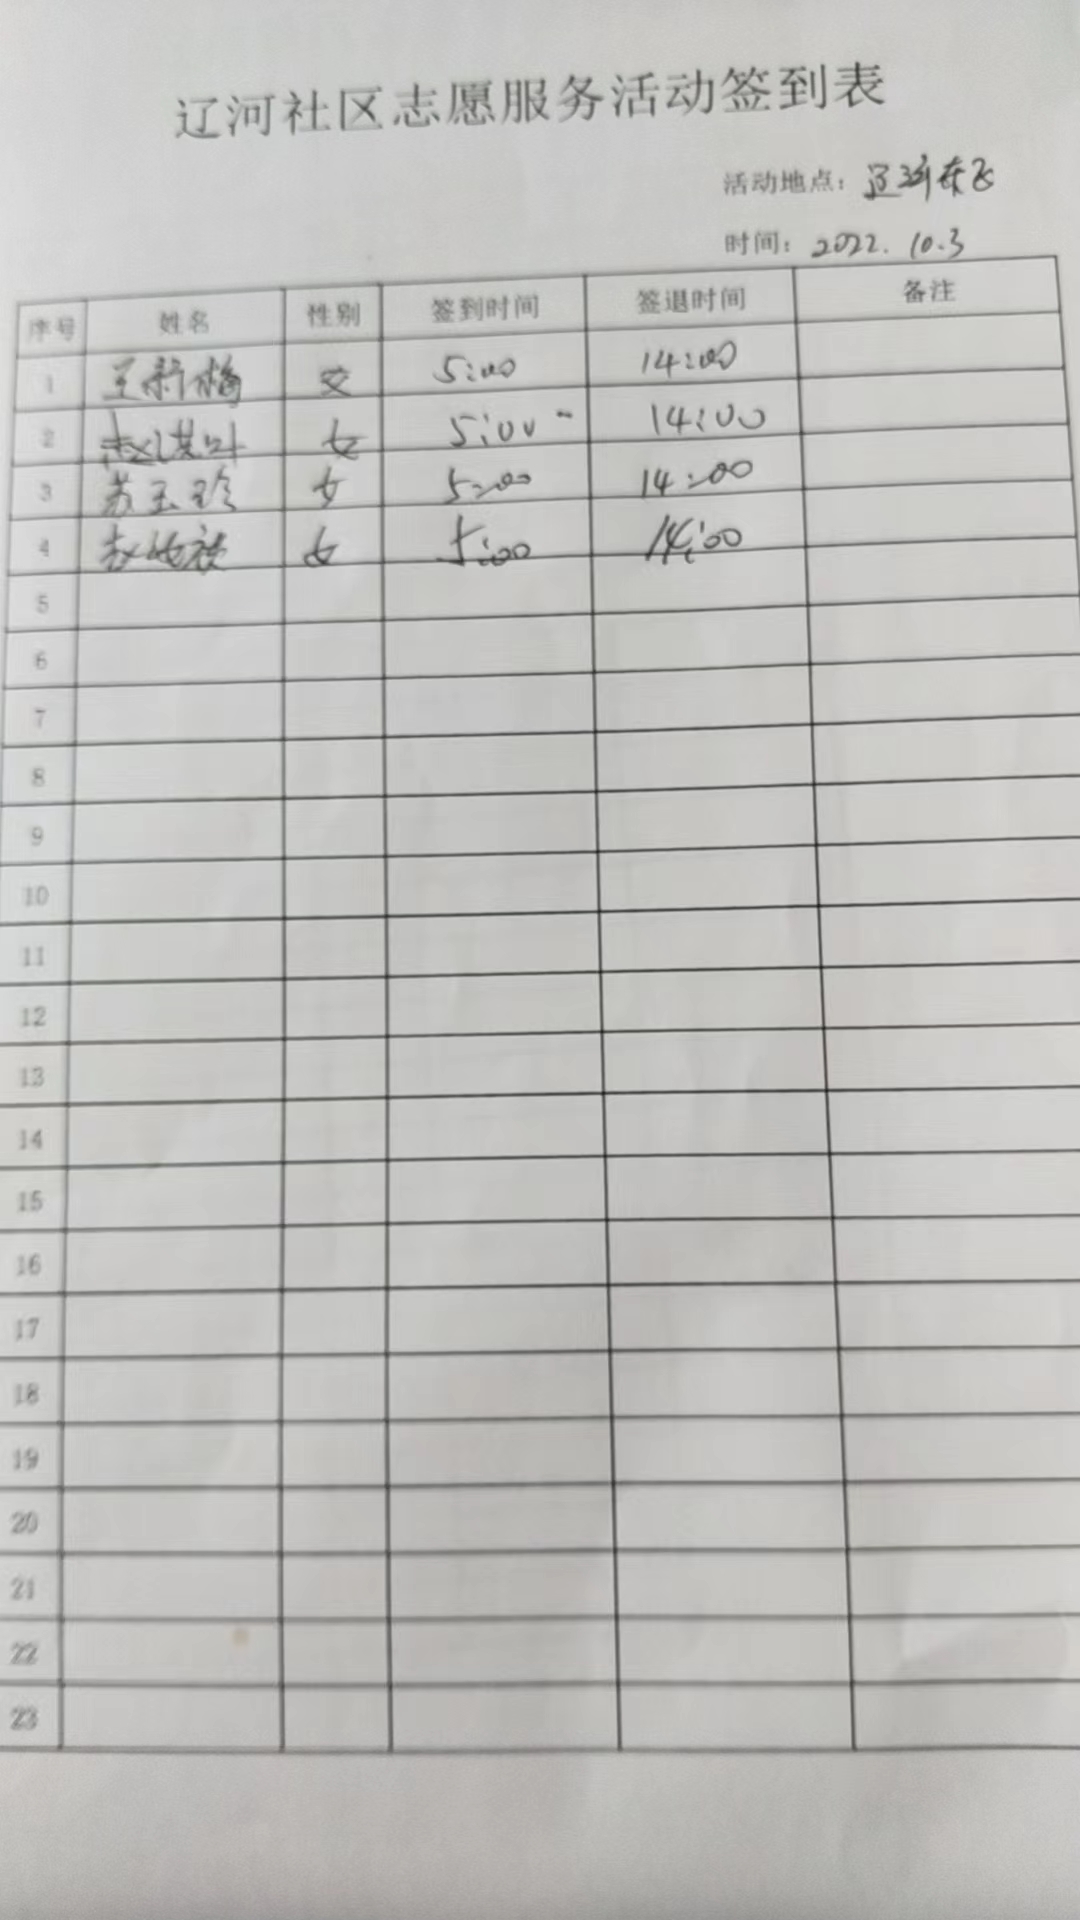 辽河社区志愿服务活动签到表
活动地点：
时间：2022.10.3
序号 姓名 性别 签到时间 签退时间 备注
1 王新梅 女 5:00 14:00
2 女 5:00 14:00
3 苏玉珍 女 5:00 14:00
4 女 5:00 14:00
5
6
7
8
9
10
11
12
13
14
15
16
17
18
19
20
21
22
23